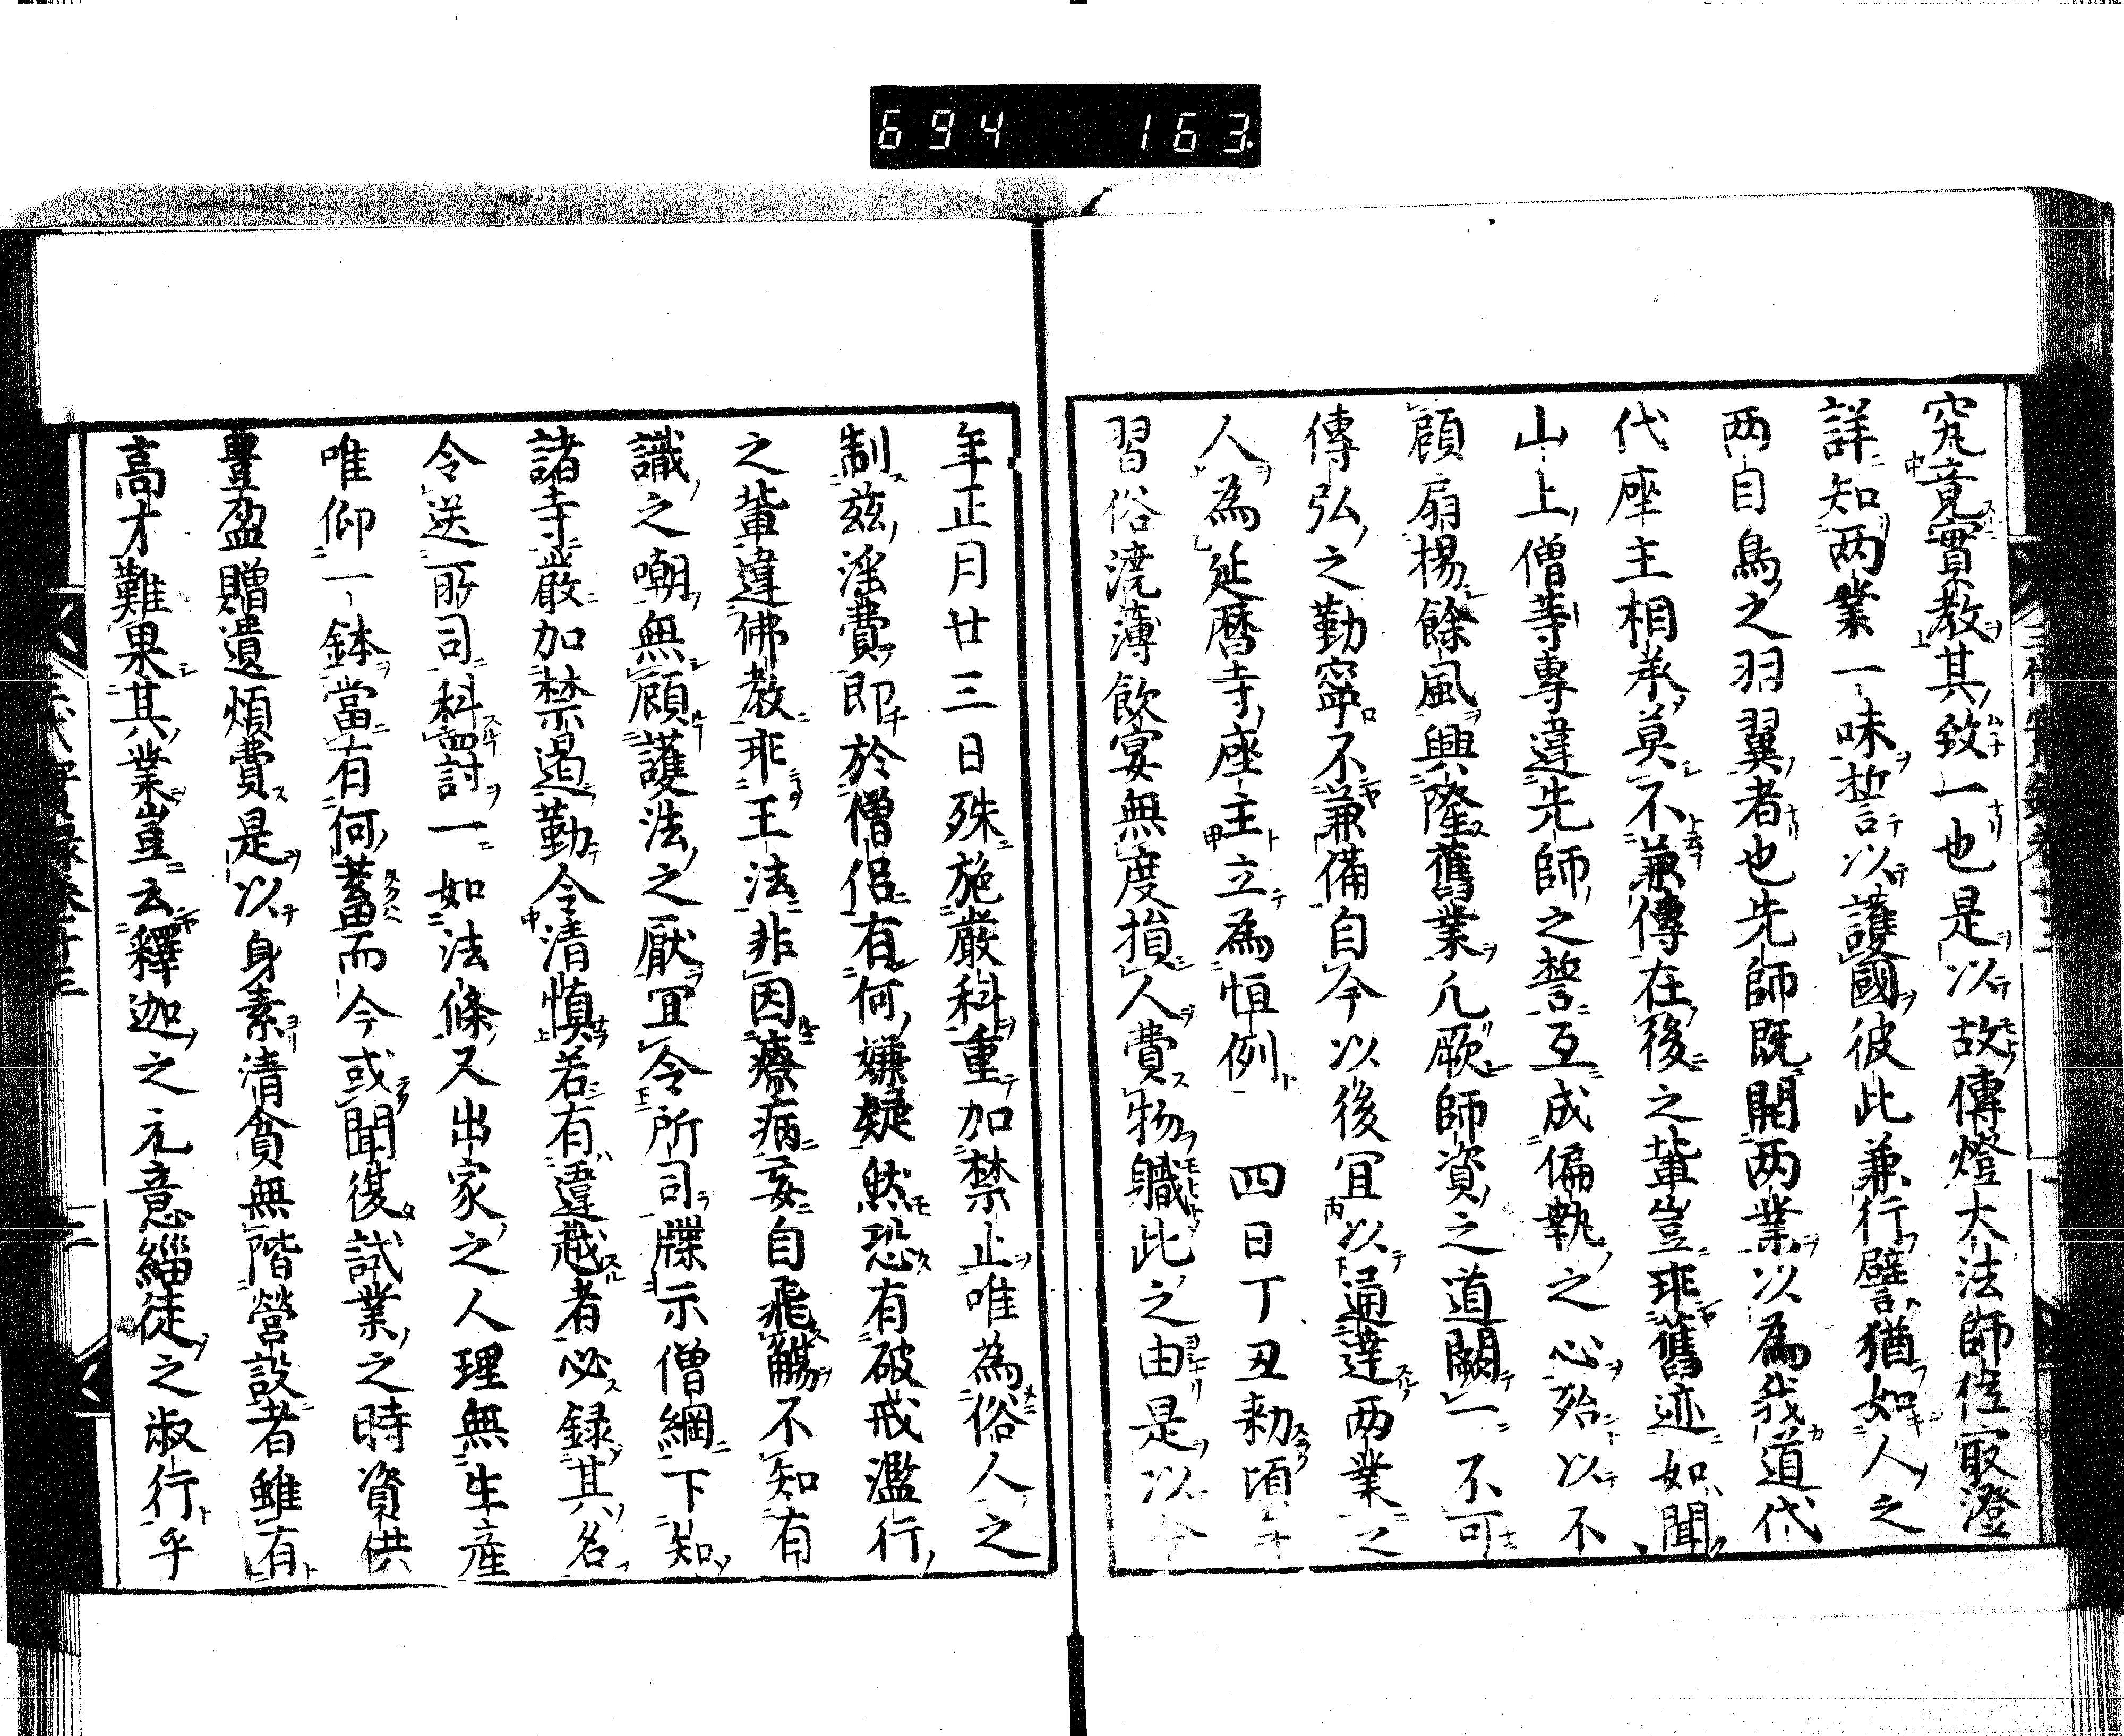 694 163
究竟實教其致一也是以故傳燈大法師位冣澄
詳知两業一味誓以護國彼此兼行譬猶如人之
两目鳥之羽翼者也先師既開两業以為我道代
代座主相承莫不兼傳在後之輩豈乖舊迹如聞
山上僧等專違先師之誓互成偏執之心殆以不
顧扇揚餘風興隆舊業凢厥師資之道闕一不可
傳弘之勤寧不兼備自今以後冝以通達两業之
人為延暦寺座主立為恒例 四日丁丑勑頃年
習俗澆薄飲宴無度損人費物職此之由是以今
年正月廿三日殊施嚴科重加禁止唯為俗人之
制兹淫費即於僧侣有何嫌疑然恐有破戒濫行
之輩違佛教乖王法非因療病妄自飛觴不知有
識之嘲無顧護法之厭冝令所司牒示僧綱下知
諸寺嚴加禁遏勤令清慎若有違越者必録其名
令送所司科罰一如法條又出家之人理無生産
唯仰一鉢當有何蓄而今或聞復試業之時資供
豊盈贈遺煩費是以身素清貧無階營設者雖有
高才難果其業豈云釋迦之元意緇徒之淑行乎